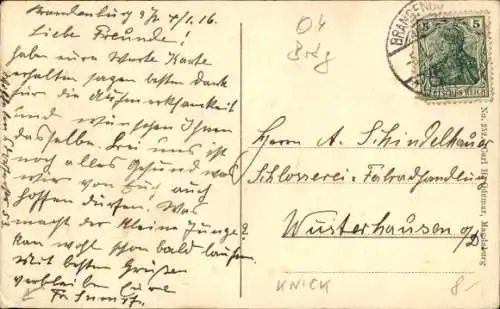 Brandenburg a/H 4/1.16.
Liebe Freunde!
habe eure Werte Karte
erhalten sagen besten Dank
für die Aufmerksamkeit
und wünschen Ihnen
dasselbe. Bei uns ist
noch alles Gesund was
wir von Euch auch
hoffen dürfen. Was
macht der kleine Junge?
kan wohl schon bald laufen.
Mit besten Grüßen
verbleiben Eure
Fr.
04
Brdg
BRANDENBU
5 5
DEUTSCHES REICH
Herrn A. Schindelhauer
Schlosserei - Fahradhandlung
Wusterhausen a/D
KNICK
8-
Magdeburg